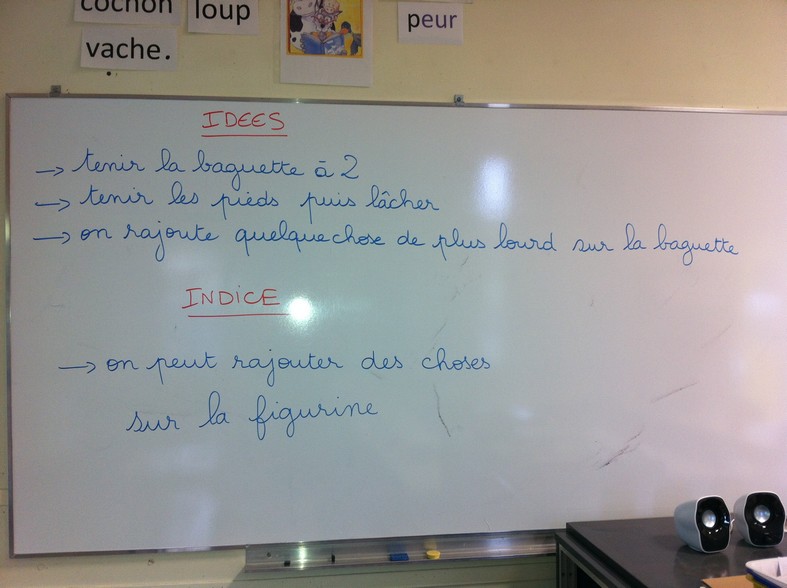 cochon loup
peur
vache.
IDEES
→ tenir la baguette à 2
→ tenir les pieds puis lâcher
→ on rajoute quelquechose de plus lourd sur la baguette
INDICE
→ on peut rajouter des choses
sur la figurine